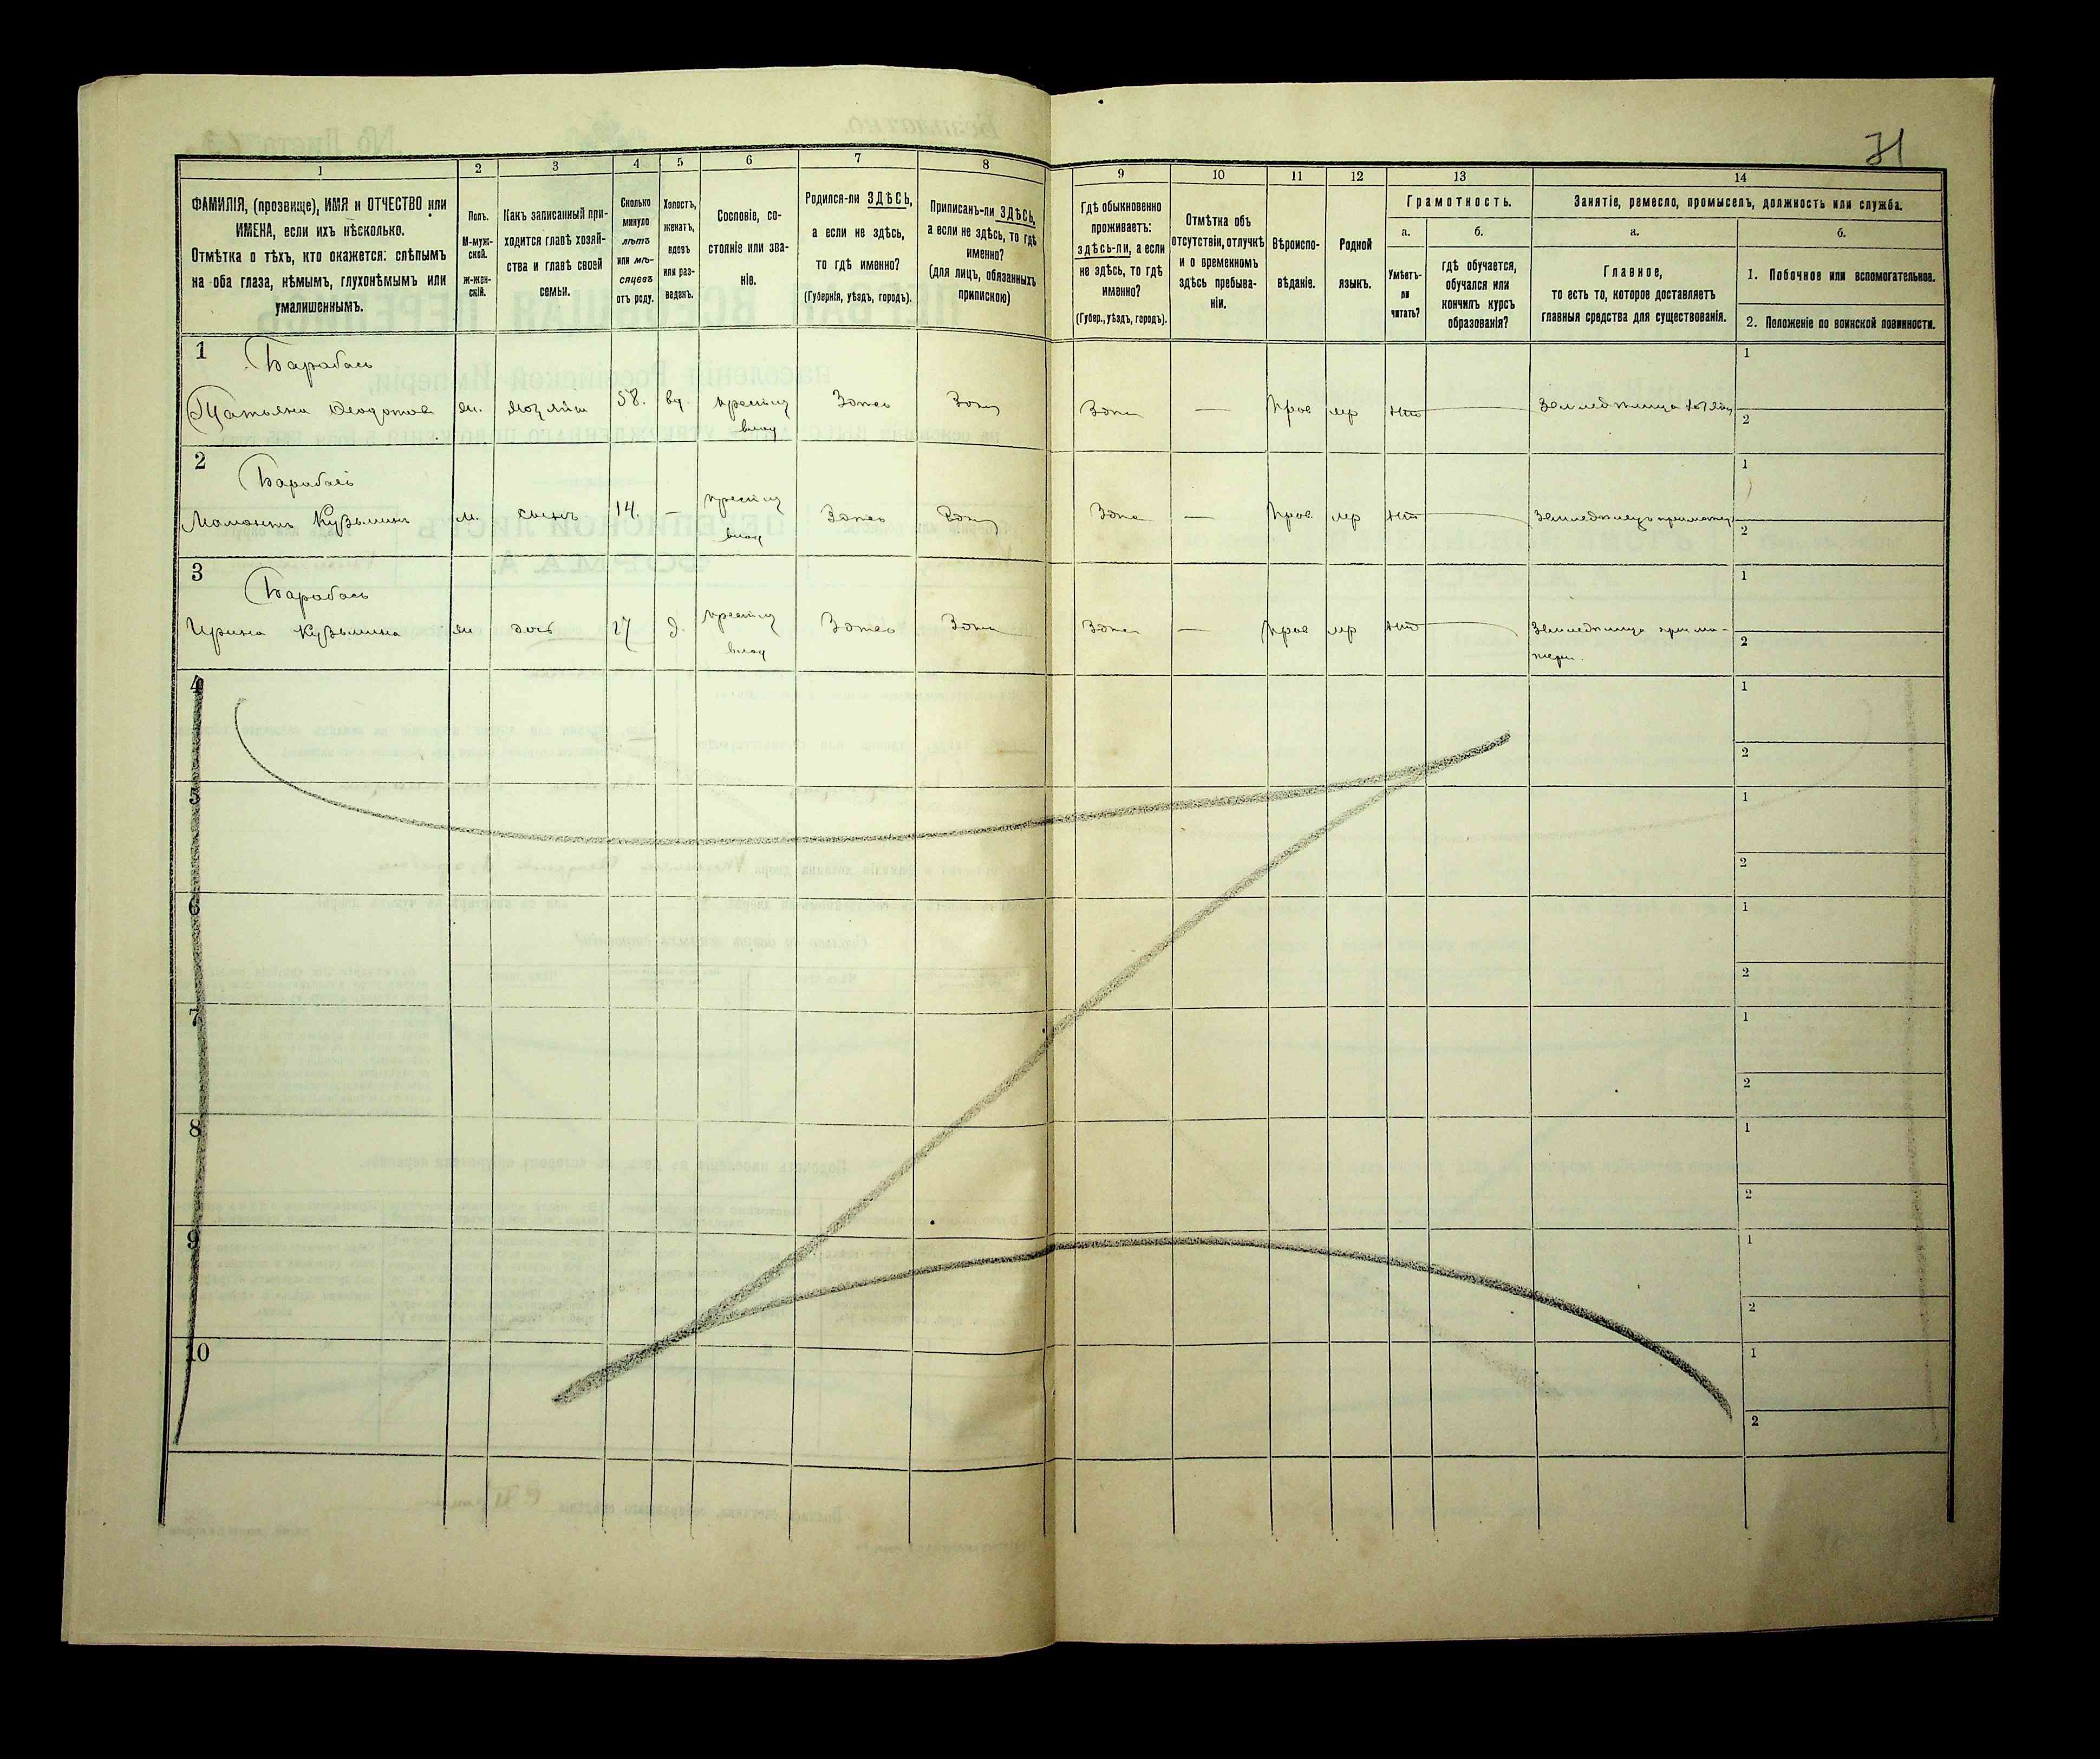 71
1
2
3
4
5
6
7
8
9
10
11
12
13
14
ФАМИЛІЯ, (прозвище), ИМЯ и ОТЧЕСТВО или
ИМЕНА, если ихъ нѣсколько.
Отмѣтка о тѣхъ, кто окажется: слѣпымъ
на оба глаза, нѣмымъ, глухонѣмымъ или
умалишеннымъ.
Полъ.
М-муж-
ской.
Ж-жен-
скій.
Какъ записанный при-
ходится главѣ хозяй-
ства и главѣ своей
семьи.
Сколько
минуло
лѣтъ
или мѣ-
сяцевъ
отъ роду.
Холостъ,
женатъ,
вдовъ
или раз-
веденъ.
Сословіе, со-
стояніе или зва-
ніе.
Родился-ли ЗДѢСЬ,
а если не здѣсь,
то гдѣ именно?
(Губернія, уѣздъ, городъ).
Приписанъ-ли ЗДѢСЬ,
а если не здѣсь, то гдѣ
именно?
(для лицъ, обязанныхъ
припискою)
Гдѣ обыкновенно
проживаетъ:
здѣсь-ли, а если
не здѣсь, то гдѣ
именно?
(Губер., уѣздъ, городъ).
Отмѣтка объ
отсутствіи, отлучкѣ
и о временномъ
здѣсь пребыва-
ніи.
Вѣроиспо-
вѣданіе.
Родной
языкъ.
Грамотность.
а.
Умѣетъ-
ли
читать?
б.
гдѣ обучается,
обучался или
кончилъ курсъ
образованія?
Занятіе, ремесло, промыселъ, должность или служба.
а.
Главное,
то есть то, которое доставляетъ
главныя средства для существованія.
б.
1. Побочное или вспомогательное.
2. Положеніе по воинской повинности.
1
Барабась
Татьяна Ѳеодотова ж. 58. вд Здѣсь Здѣсь Здѣсь — Прав мр нѣтъ
1
2
2
Барабась
Мамонтъ Кузьминъ м. сынъ 14. — Здѣсь Здѣсь Здѣсь — Прав мр нѣтъ
1
2
3
Барабась
Ирина Кузьмина ж дочь 17 д. Здѣсь Здѣсь Здѣсь — Прав мр нѣтъ Земледѣлица при ма-
тери.
1
2
4
1
2
5
1
2
6
1
2
7
1
2
8
1
2
9
1
2
10
1
2